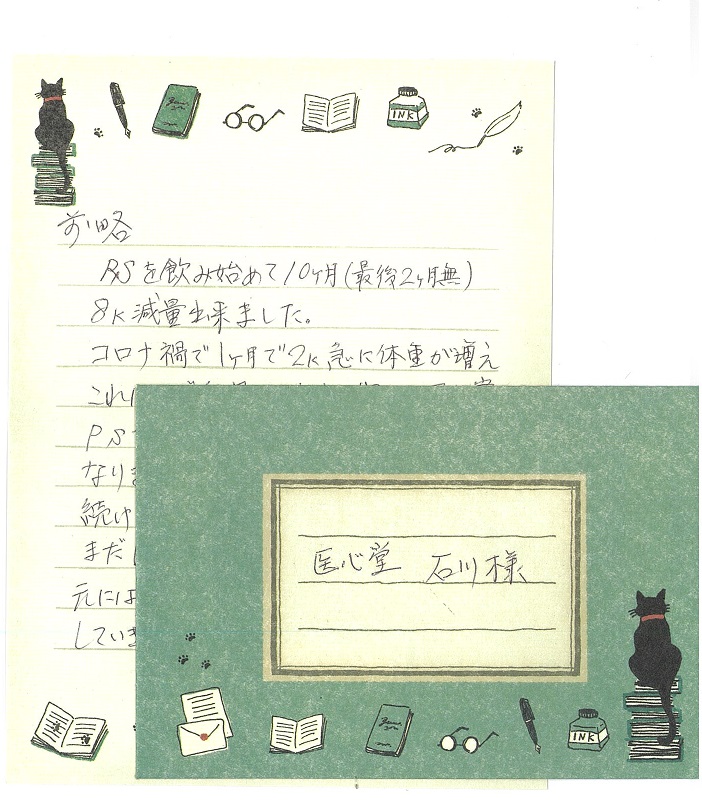 INK
前略
PSを飲み始めて10ヶ月(最後2ヶ月無)
8K減量出来ました。
コロナ禍で1ヶ月で2K急に体重が増え
これ
PS
なり
続け
まだ
元には
してい
医心堂 石川様
INK